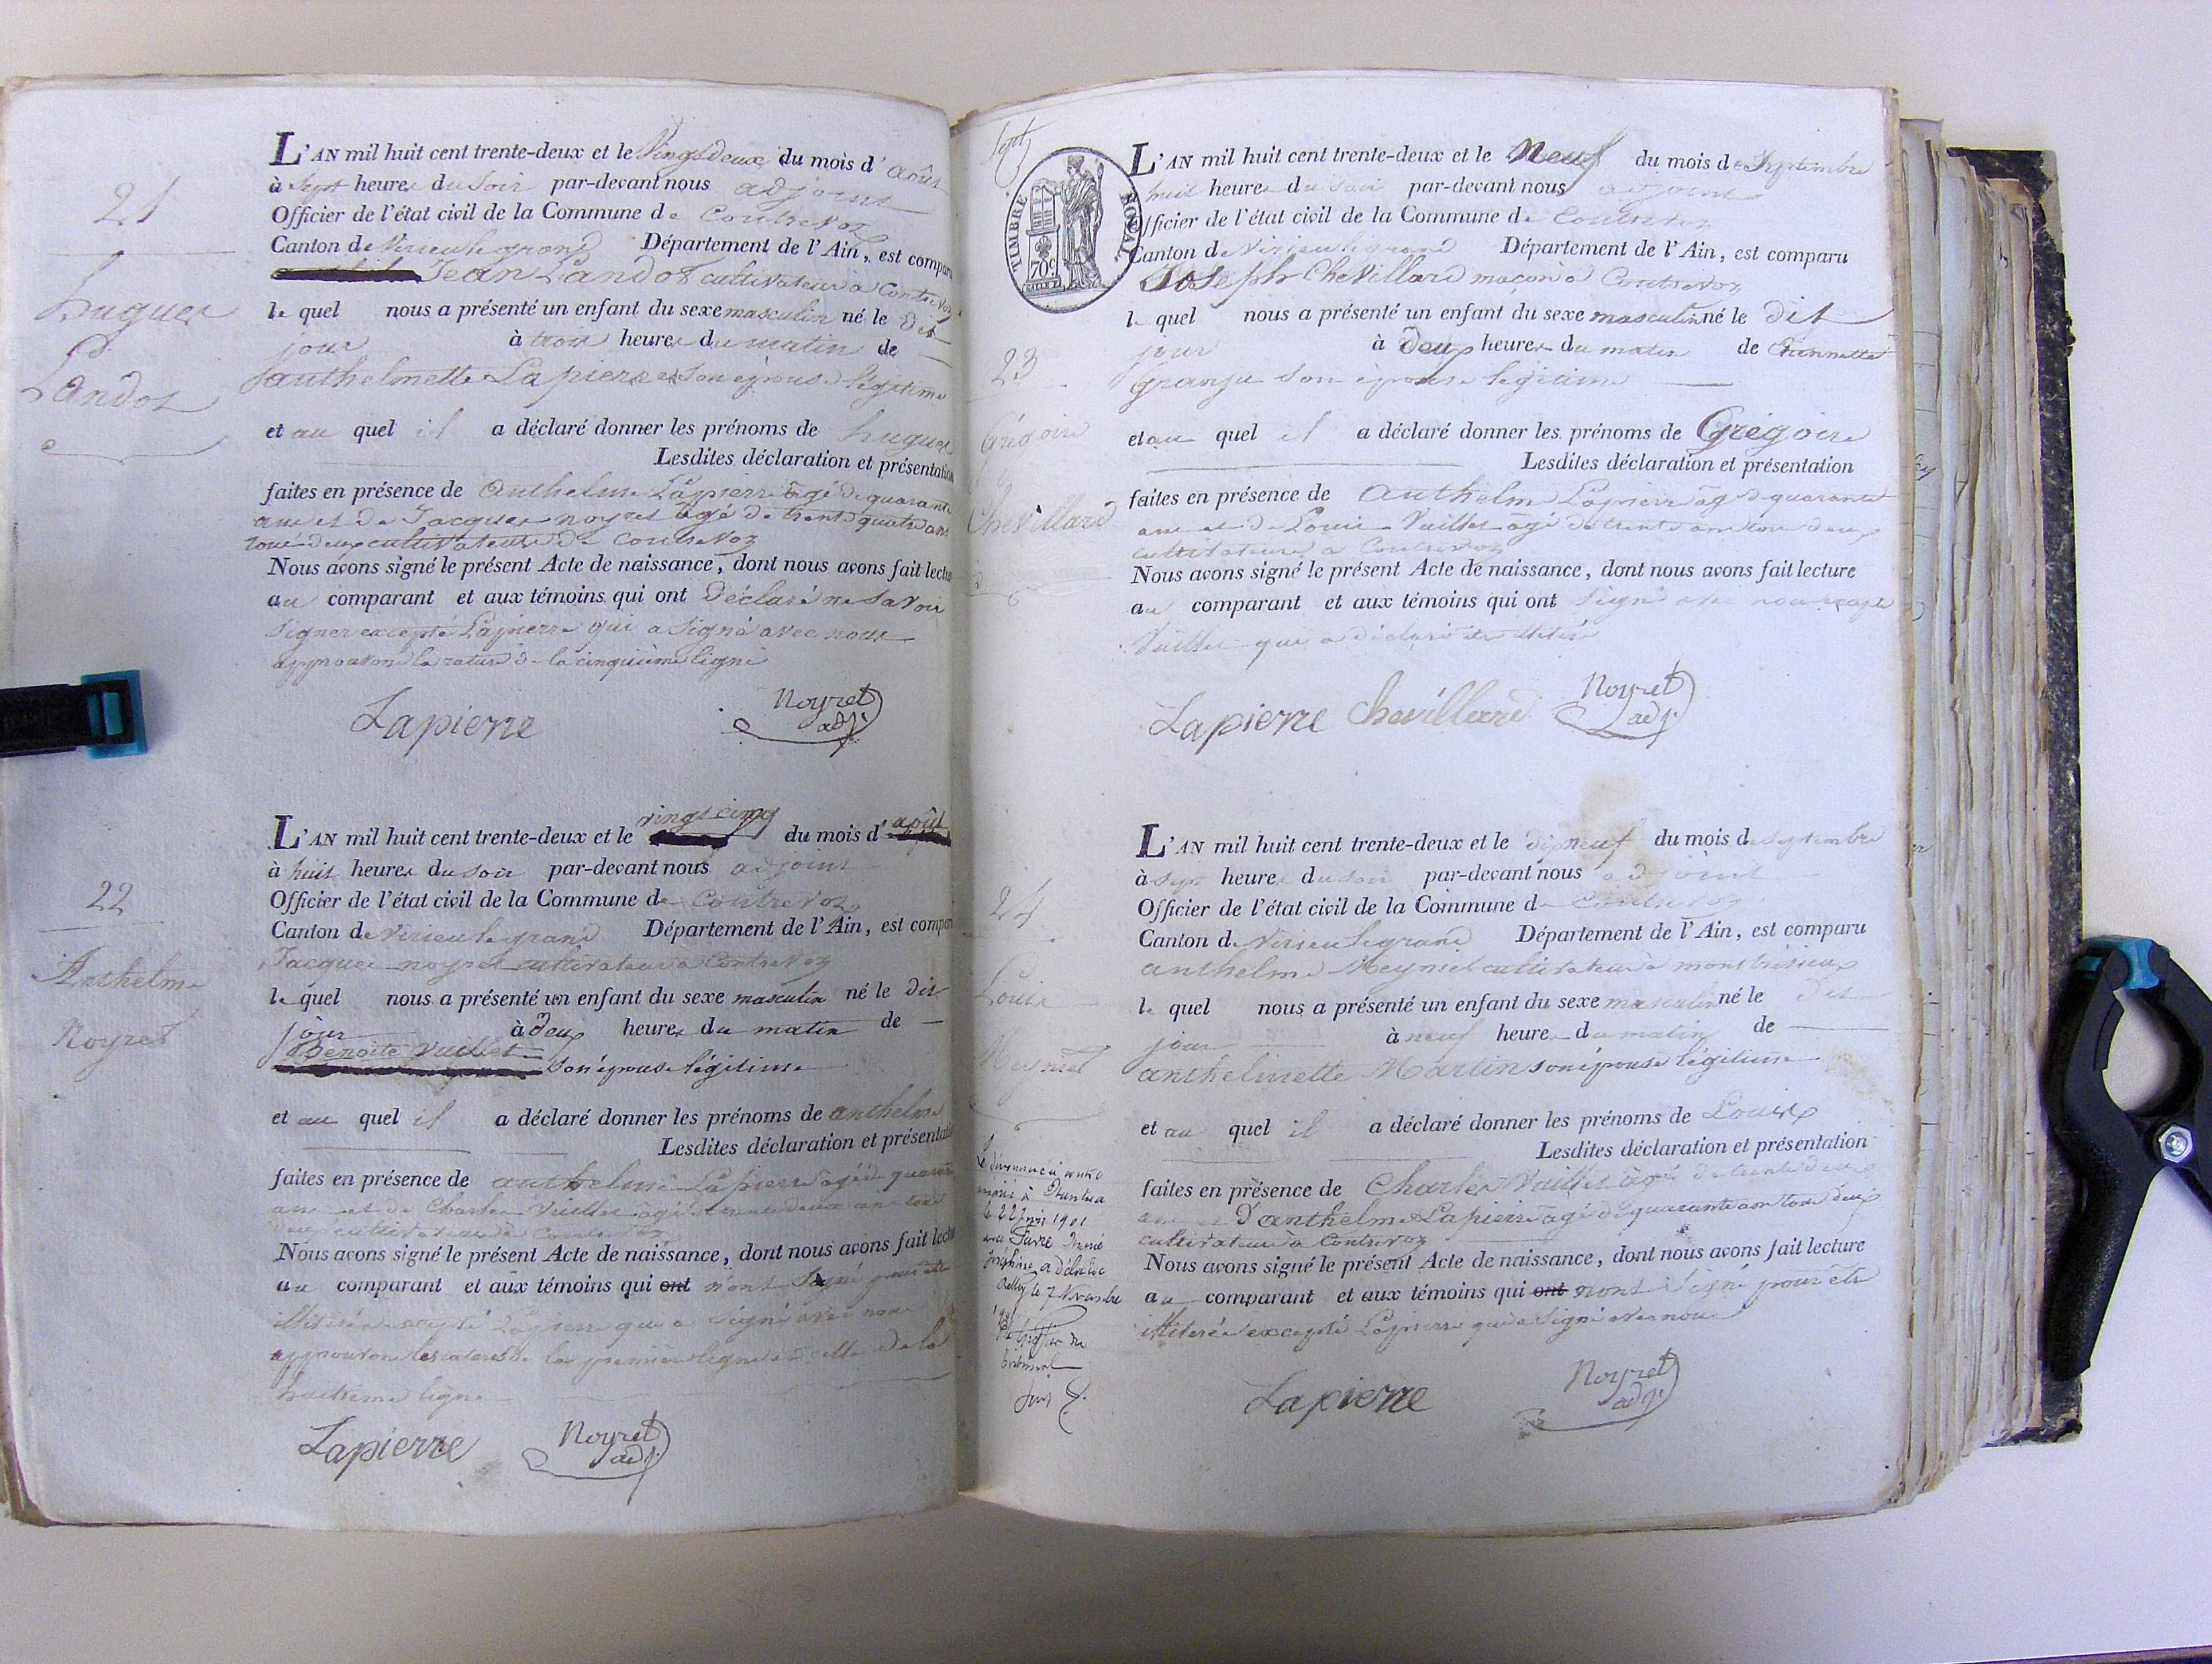 21
hugues
Landoz
L'AN mil huit cent trente-deux et le Vingtdeux du mois d'août
à Sept heures du Soir par-devant nous adjoint
Officier de l'état civil de la Commune de Contrevoz
Canton de Virieu le grand Département de l'Ain, est comparu
Jean Landoz cultivateur à Contrevoz
le quel nous a présenté un enfant du sexe masculin né le dit
jour à trois heures du matin de
anthelmette Lapierre son épouse légitime
et au quel il a déclaré donner les prénoms de hugues
Lesdites déclaration et présentation
faites en présence de Anthelme Lapierre âgé de quarante
ans et de Jacques noyret âgé de trente quatre ans
tous deux cultivateurs de Contrevoz
Nous avons signé le présent Acte de naissance, dont nous avons fait lecture
au comparant et aux témoins qui ont déclaré ne Savoir
Signer excepté Lapierre qui a Signé avec nous
approuvons la rature de la cinquième ligne
Lapierre Noyret adj.
22
Anthelme
Noyret
L'AN mil huit cent trente-deux et le vingt cinq du mois d'août
à huit heures du soir par-devant nous adjoint
Officier de l'état civil de la Commune de Contrevoz
Canton de Virieu le grand Département de l'Ain, est comparu
Jacques noyret cultivateur à Contrevoz
le quel nous a présenté un enfant du sexe masculin né le dit
jour à deux heures du matin de
Benoite Vuillet
son épouse légitime
et au quel il a déclaré donner les prénoms de anthelme
Lesdites déclaration et présentation
faites en présence de anthelme Lapierre âgé de quarante
ans et de Charles Vuillet âgé de trente deux ans tous
deux cultivateurs à Contrevoz
Nous avons signé le présent Acte de naissance, dont nous avons fait lecture
au comparant et aux témoins qui ont n'ont Signé pour être
illitérés excepté Lapierre qui a Signé avec nous
approuvons les ratures de la première ligne et celle de la
huitième ligne
Lapierre Noyret adj.
Sept
TIMBRE ROYAL
70c
23
Grégoire
Chevillard
L'AN mil huit cent trente-deux et le Neuf du mois de Septembre
huit heures du Soir par-devant nous adjoint
Officier de l'état civil de la Commune de Contrevoz
Canton de Virieu le grand Département de l'Ain, est comparu
Joseph Chevillard maçon à Contrevoz
le quel nous a présenté un enfant du sexe masculin né le dit
jour à deux heures du matin de
son épouse légitime
et au quel il a déclaré donner les prénoms de Grégoire
Lesdites déclaration et présentation
faites en présence de Anthelme Lapierre âgé de quarante
ans et de Louis Vuillet âgé de trente ans tous deux
cultivateurs à Contrevoz
Nous avons signé le présent Acte de naissance, dont nous avons fait lecture
au comparant et aux témoins qui ont Signé avec nous excepté
Vuillet qui a déclaré être illitéré
Lapierre Chevillard Noyret adj.
24
Louis
Meyniel
Le 22 juin 1901
Joséphine
le 7 Novembre
Le Greffier du
tribunal
L'AN mil huit cent trente-deux et le dixneuf du mois de Septembre
à Sept heures du Soir par-devant nous adjoint
Officier de l'état civil de la Commune de Contrevoz
Canton de Virieu le grand Département de l'Ain, est comparu
anthelme Meyniel cultivateur à
le quel nous a présenté un enfant du sexe masculin né le dit
jour à neuf heures du matin de
anthelmette Martin son épouse légitime
et au quel il a déclaré donner les prénoms de Louis
Lesdites déclaration et présentation
faites en présence de Charles Vuillet âgé de trente deux
ans et d'anthelme Lapierre âgé de quarante ans tous deux
cultivateurs à Contrevoz
Nous avons signé le présent Acte de naissance, dont nous avons fait lecture
au comparant et aux témoins qui ont n'ont Signé pour être
illitérés excepté Lapierre qui a Signé avec nous
Lapierre Noyret adj.